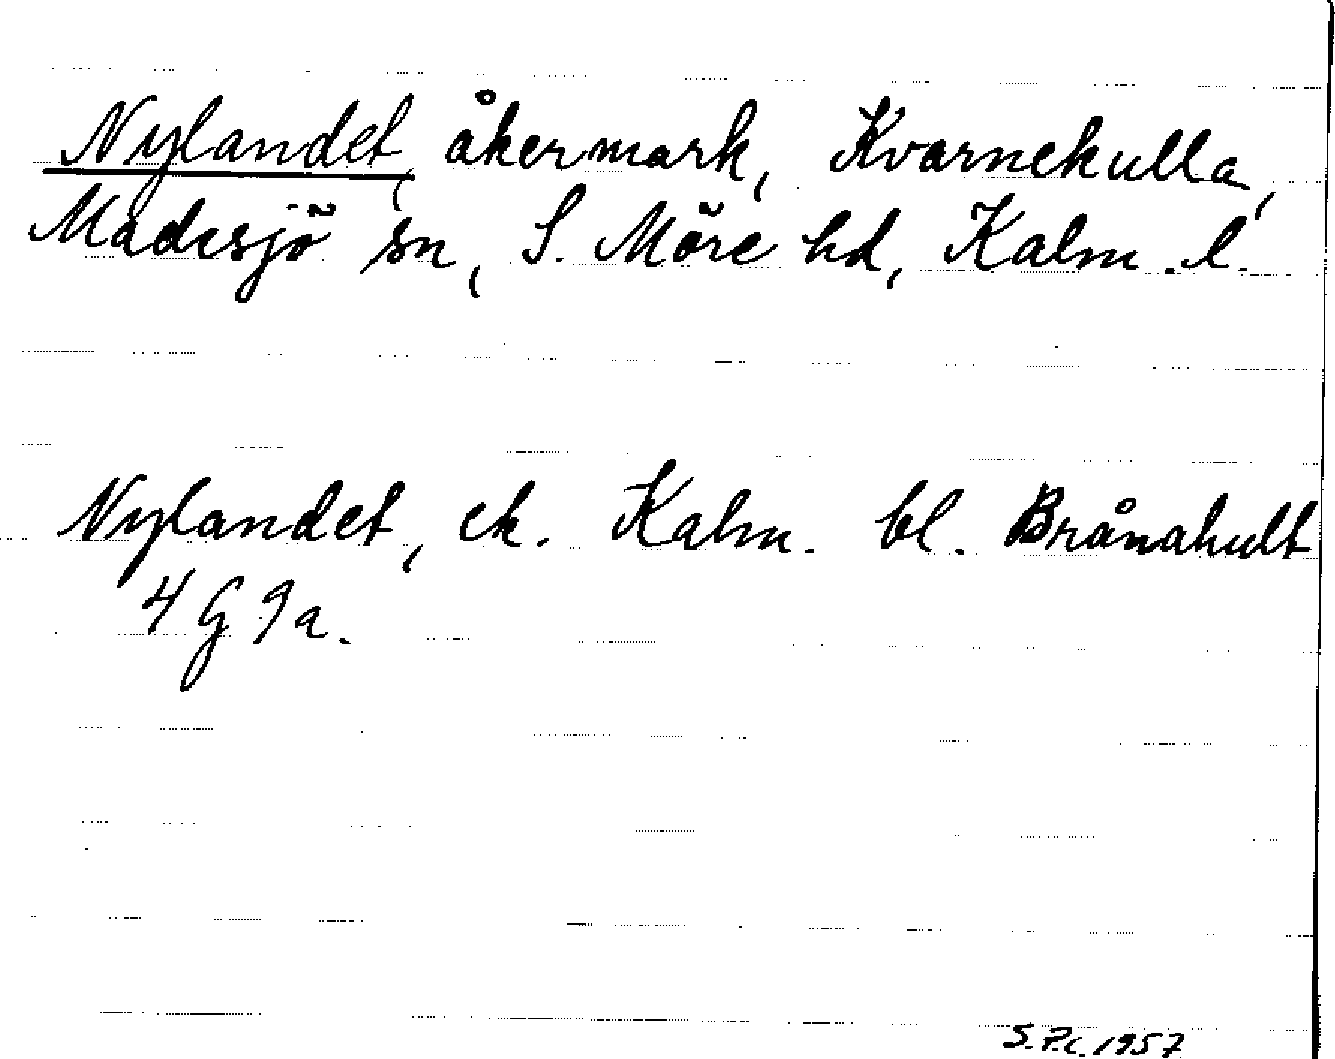 Nylandet, åkermark, Kvarnekulla,
Madesjö sn, S. Möre hd, Kalm. l.
Nylandet, ek. Kalm. bl. Brånahult
4 G 9a.
S.P.C. 1957